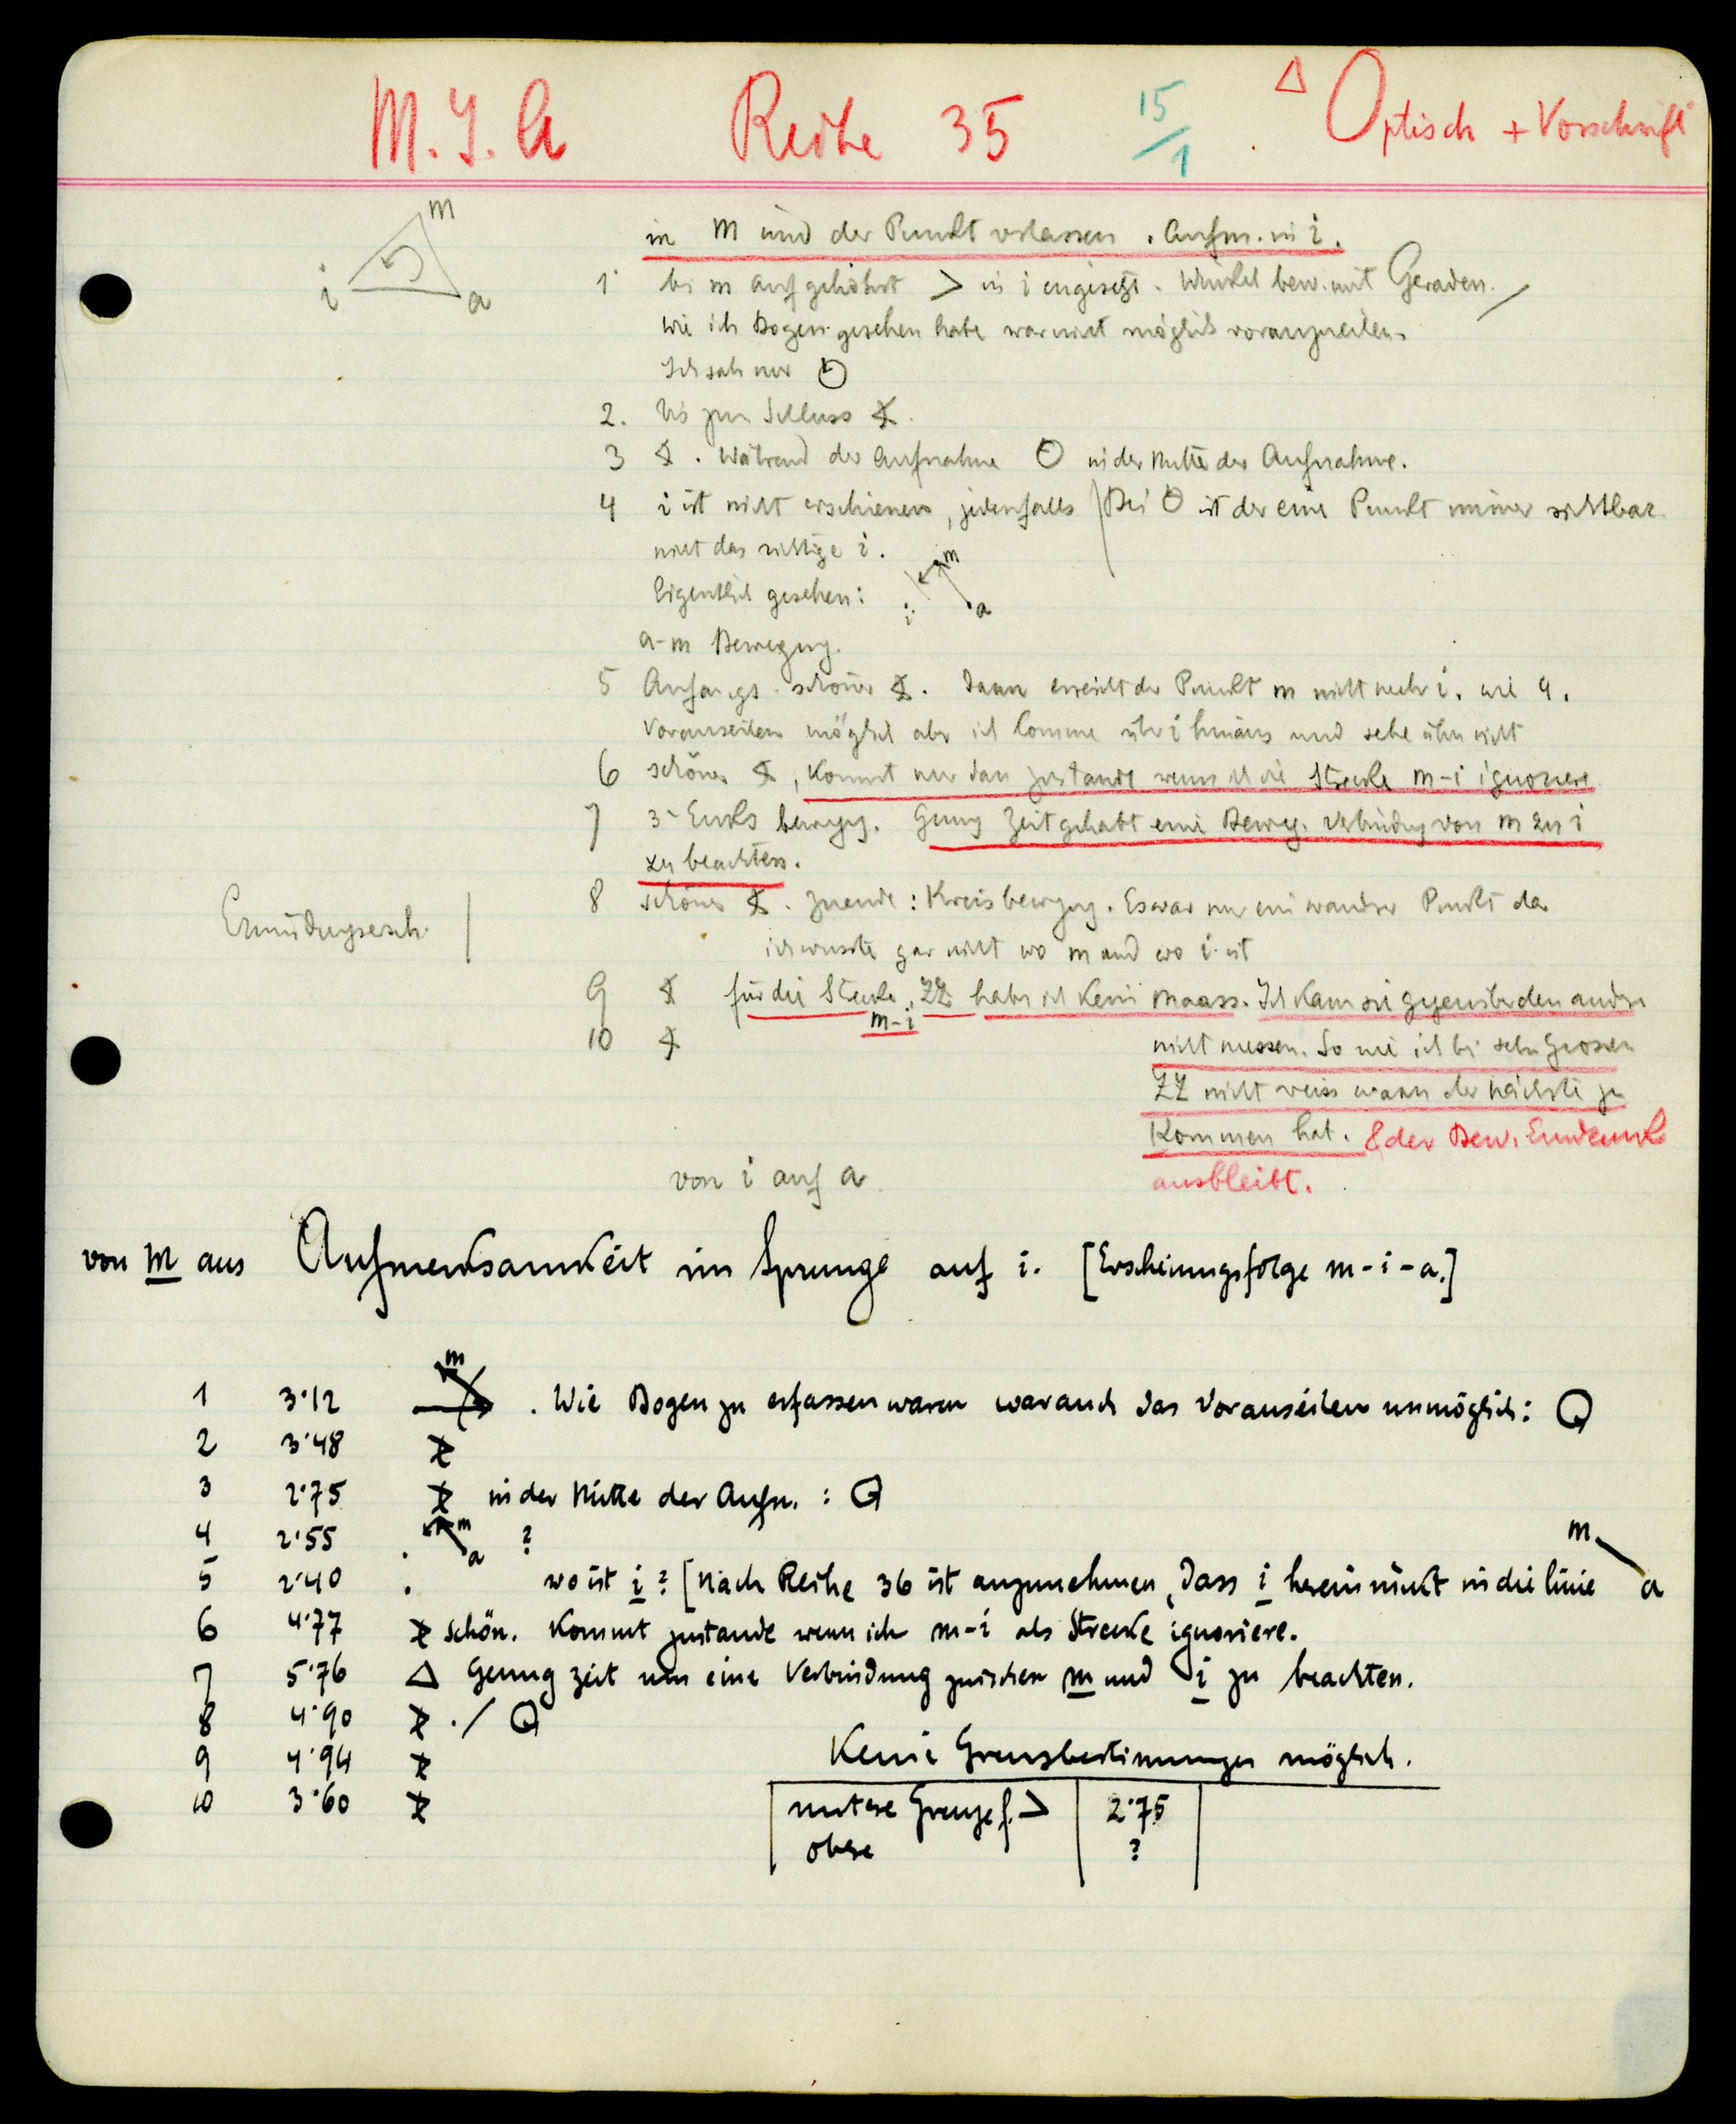 M. I. A Reihe 35 15/1 Δ Optisch + Vorschrift
m
i a
in m wird der Punkt verlassen. Aufm. in i.
1 bei m aufgehört > in i eingesetzt. Winkel bew. mit Geraden.
Wie ich Bogen gesehen habe war nicht möglich voranzueilen.
Ich sah nur
2. bis zum Schluss
3 . Während der Aufnahme in der Mitte der Aufnahme.
4 i ist nicht erschienen, jedenfalls | Bei ist der eine Punkt immer sichtbar
nicht das richtige i.
Eigentlich gesehen: m i a
a-m Bewegung.
5 Anfangs schöner . Dann erreicht der Punkt m nicht mehr i. wie 4.
Vorauseilen möglich aber ich komme über i hinaus und sehe ihn nicht
6 schöner , kommt nur dan zustande wenn ich die Strecke m-i ignoriere
7 3-Ecks bewegg. Genug Zeit gehabt eine Beweg. Verbindug von m zu i
zu beachten.
8 schöner . Zuende: Kreisbewegug. Es war nur ein Punkt da
Ermüdungsersch. |
ich wusste gar nicht wo m und wo i ist
9 für die Strecke, ZZ habe ich kein Maass. Ich kann sie gegenüber den andern
m-i
10 nicht messen. So wie ich bei sehr grossen
ZZ nicht weiss wann der nächste zu
kommen hat. & der Bew. Eindruck
ausbleibt.
von i auf a
von m aus Aufmerksamkeit im Sprunge auf i. [Erscheinungsfolge m-i-a.]
m
1 3·12 . Wie Bogen zu erfassen waren war auch das Vorauseilen unmöglich:
2 3·48
3 2·75 in der Mitte der Aufn. :
4 2·55 m a ?
5 2·40 . wo ist i? [Nach Reihe 36 ist anzunehmen, dass i hereinrückt in die linie m a
6 4·77 schön. Kommt zustande wenn ich m-i als Strecke ignoriere.
7 5·76 Δ Genug zeit um eine Verbindung zwischen m und i zu beachten.
8 4·90 . /
9 4·94
Keine Grenzbestimmungen möglich.
10 3·60
untere Grenze f. > | 2·75
obere ?